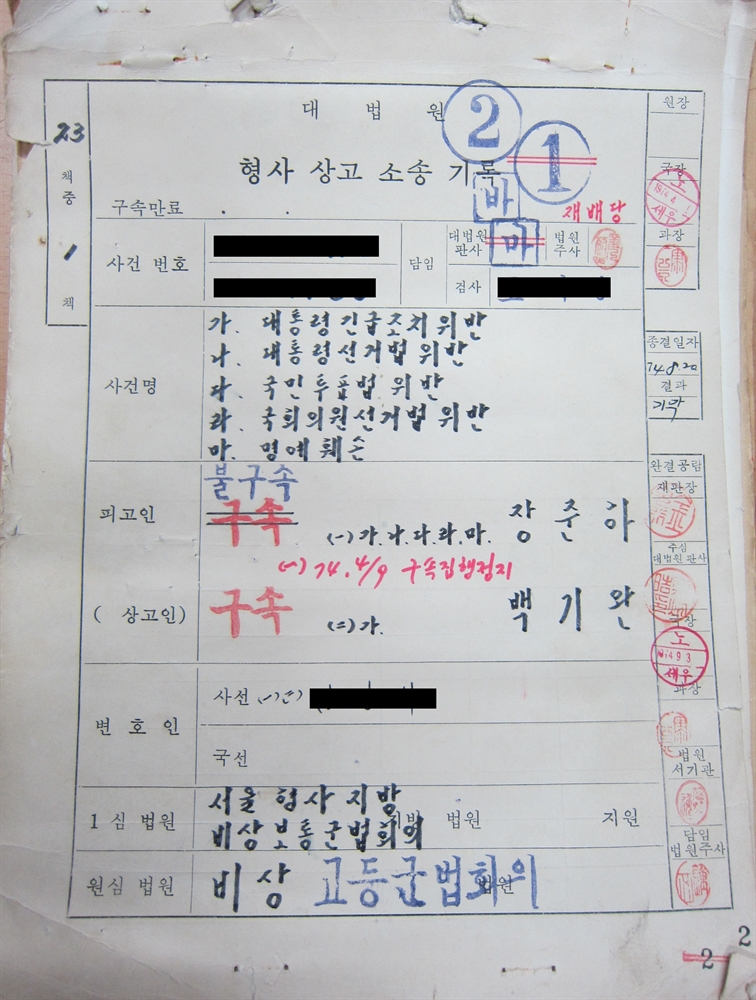 대법원
② ①
형사 상고 소송 기록
바
구속만료 . .
재배당
23
책
중
1
책
사건 번호
담임
대법원 판사
마
법원 주사
검사
사건명
가. 대통령긴급조치위반
나. 대통령선거법위반
다. 국민투표법위반
라. 국회의원선거법위반
마. 명예훼손
피고인
불구속
구속
(一) 가.나.다.라.마.
장준하
(一) 74.4/9 구속집행정지
(상고인)
구속
(二) 가.
백기완
변호인
사선 (一)(二)
국선
1심 법원
서울형사지방
비상보통군법회의
지방 법원
지원
원심 법원
비상 고등군법회의
법원
원장
국장
노
세우
과장
종결일자
74.8.20
결과
기각
완결공람
재판장
주심
대법원판사
국장
노
1974 9 3
세우
과장
법원
서기관
담임
법원주사
2
2